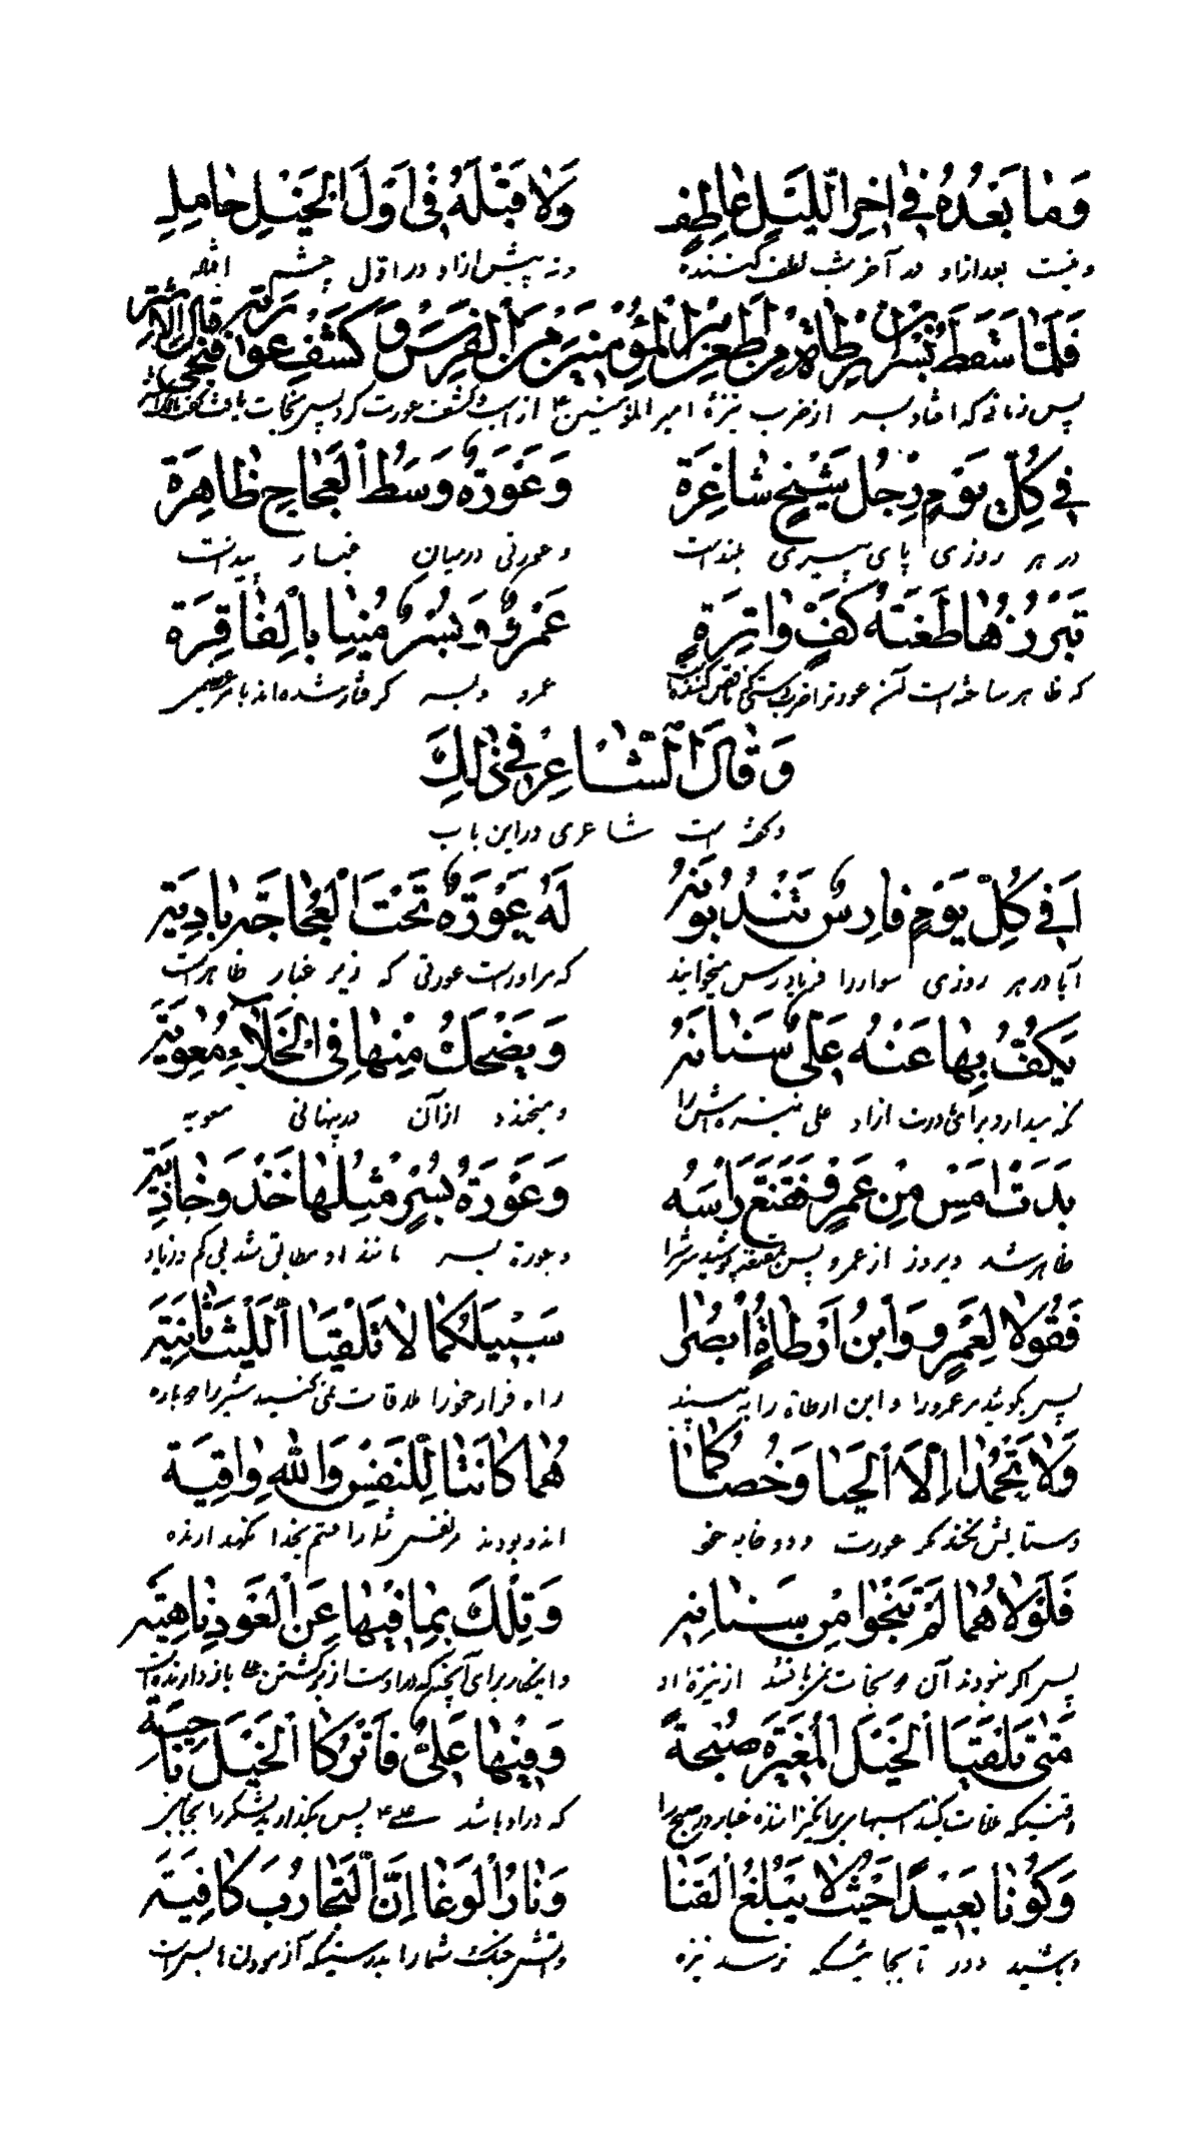 وَمٰا بَعْدَهُ فِي اٰخِرِ اللَّيْلِ عٰاطِفٍ وَلاٰ قَبْلَهُ فِي اَوَّلِ الْخَيْلِ حٰامِلِ
و نیست بعد از او در آخر شب لطف کننده و نه پیش از او در اول چشم
فَلَمّٰا سَقَطَ بُسْرٌ مِنْ طَعْنِ اَمِيرِ الْمُؤْمِنِيْنَ مِنَ الْفَرَسِ وَ كَشَفَ عَوْرَتَهُ فَنَجٰى قٰالَ الْاَشْتَرُ
پس زمانی که افتاد بسر از ضرب نیزهٔ امیر المؤمنین ع از اسب و کشف عورت کرد پس نجات یافت
فِي كُلِّ يَوْمٍ رِجْلُ شَيْخٍ شٰاغِرَة وَعَوْرَةٌ وَسْطَ الْعَجٰاجِ ظٰاهِرَة
در هر روزی پای پیری بلند است و عورتی در میان غبار پیداست
تَبْرُزُهٰا طَعْنَةُ كَفٍّ وٰاتِرَةٍ عَمْرٌو وَبُسْرٌ مُنِيٰا بِالْفٰاقِرَة
که ظاهر ساخته است آن عورت را عمرو و بسر گرفتار شده اند
وَقٰالَ الشّٰاعِرُ فِي ذٰلِكَ
و گفته است شاعری در این باب
اَفِي كُلِّ يَوْمٍ فٰارِسٌ تَنْدُبُونَهُ لَهُ عَوْرَةٌ تَحْتَ الْعَجٰاجَةِ بٰادِيَة
آیا در هر روزی سوار را فریادرس میخوانید که مر او راست عورتی که زیر غبار ظاهر است
يَكُفُّ بِهٰا عَنْهُ عَلِيٌّ سَنٰانَهُ وَيَضْحَكُ مِنْهٰا فِي الْخَلاٰءِ مُعٰوِيَة
و میخندد از آن در پنهانی معویه
بَدَتْ اَمْسِ مِنْ عَمْرٍو فَقَنَّعَ رَاْسَهُ وَعَوْرَةُ بُسْرٍ مِثْلُهٰا حَذْوَ حٰاذِيَة
ظاهر شد دیروز از عمرو پس و عورة بسر مانند او مطابق شد بی کم و زیاد
فَقُولاٰ لِعَمْرٍو وَابْنِ اَرْطٰاةٍ اُبْصُرٰا سَبِيلَكُمٰا لاٰ تَلْقَيَا اللَّيْثَ ثٰانِيَة
پس بگوئید مر عمرو را و ابن ارطاة را به بینید راه فرار خود را ملاقات نمی کنید شیر را دوباره
وَلاٰ تَحْمَدٰا اِلَّا الْحَيٰا وَخُصٰاكُمٰا هُمٰا كٰانَتٰا لِلنَّفْسِ وَاللهِ وٰاقِيَة
و ستایش نکنید مگر عورت و دو خایه خود اند و بودند مر نفس شما را قسم بخدا نگهدارنده
فَلَوْلاٰهُمٰا لَمْ تَنْجُوٰا مِنْ سِنٰانِهِ وَتِلْكَ بِمٰا فِيهٰا عَنِ الْعَوْدِ نٰاهِيَة
پس اگر نبودند آن دو نجات نمی یافتند از نیزه او
مَتٰى تَلْقَيَا الْخَيْلَ الْمُغِيرَةَ صُبْحَةً وَفِيهٰا عَلِيٌّ فَاتْرُكَا الْخَيْلَ نٰاحِيَة
که در او باشد علی ع پس بگذارید لشکر را بجانبی
وَكُونٰا بَعِيدًا حَيْثُ لاٰ يَبْلُغُ الْقَنٰا وَنٰارُ الْوَغٰا اِنَّ التَّجٰارُبَ كٰافِيَة
و باشید دور تا بجائیکه نرسد نیزه و آتش جنگ شما را بدرستیکه آزمودن